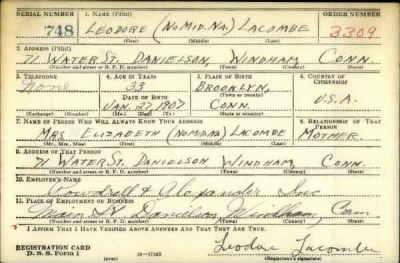 SERIAL NUMBER 1. NAME (Print) ORDER NUMBER
748 LEODORE (NO MID. NA.) LACOMBE 3309
(First) (Middle) (Last)
2. ADDRESS (Print)
71 WATER ST. DANIELSON, WINDHAM, CONN.
(Number and street or R. F. D. number) (Town) (County) (State)
3. TELEPHONE 4. AGE IN YEARS 5. PLACE OF BIRTH 6. COUNTRY OF CITIZENSHIP
None 33 BROOKLYN,
DATE OF BIRTH (Town or county)
JAN. 27, 1907 CONN. U.S.A.
(Exchange) (Number) (Mo.) (Day) (Yr.) (State or country)
7. NAME OF PERSON WHO WILL ALWAYS KNOW YOUR ADDRESS 8. RELATIONSHIP OF THAT PERSON
MRS. ELIZABETH (NO MID NA) LACOMBE MOTHER
(Mr., Mrs., Miss) (First) (Middle) (Last)
9. ADDRESS OF THAT PERSON
71 WATER ST. DANIELSON WINDHAM, CONN.
(Number and street or R. F. D. number) (Town) (County) (State)
10. EMPLOYER'S NAME
& Alexander Inc
11. PLACE OF EMPLOYMENT OR BUSINESS
Main St Danielson, Windham, Conn
(Number and street or R. F. D. number) (Town) (County) (State)
I AFFIRM THAT I HAVE VERIFIED ABOVE ANSWERS AND THAT THEY ARE TRUE.
REGISTRATION CARD Leodore Lacombe
D. S. S. FORM 1 (over) (Registrant's signature)